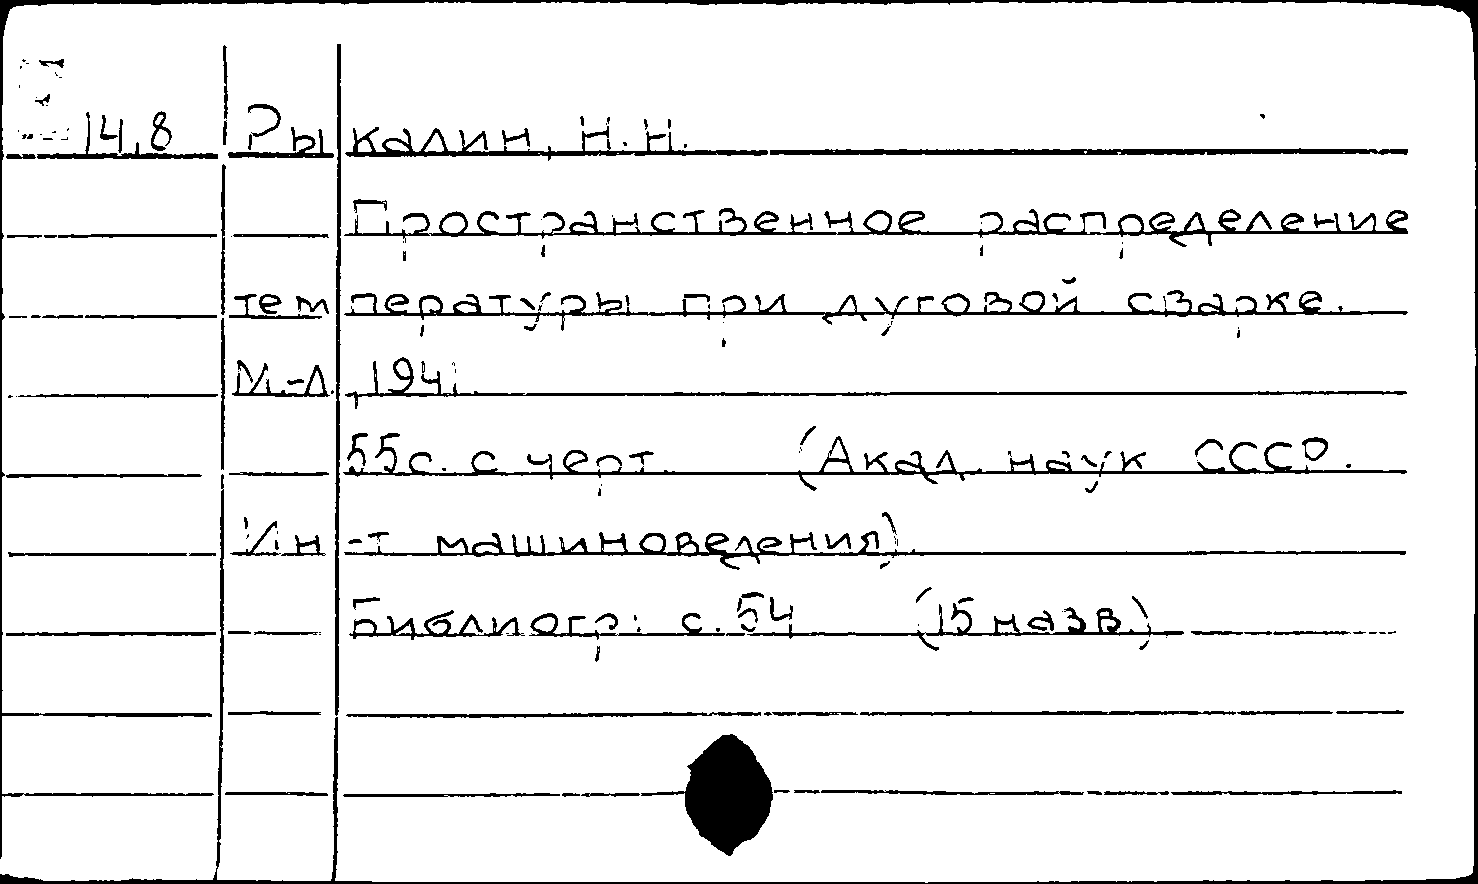 14,8 Рыкалин, Н.Н.
Пространственное распределение
температуры при дуговой сварке.
М.-Л., 1941.
55с. с черт. (Акад. наук СССР.
Ин-т машиноведения).
Библиогр: с. 54 (15 назв.)